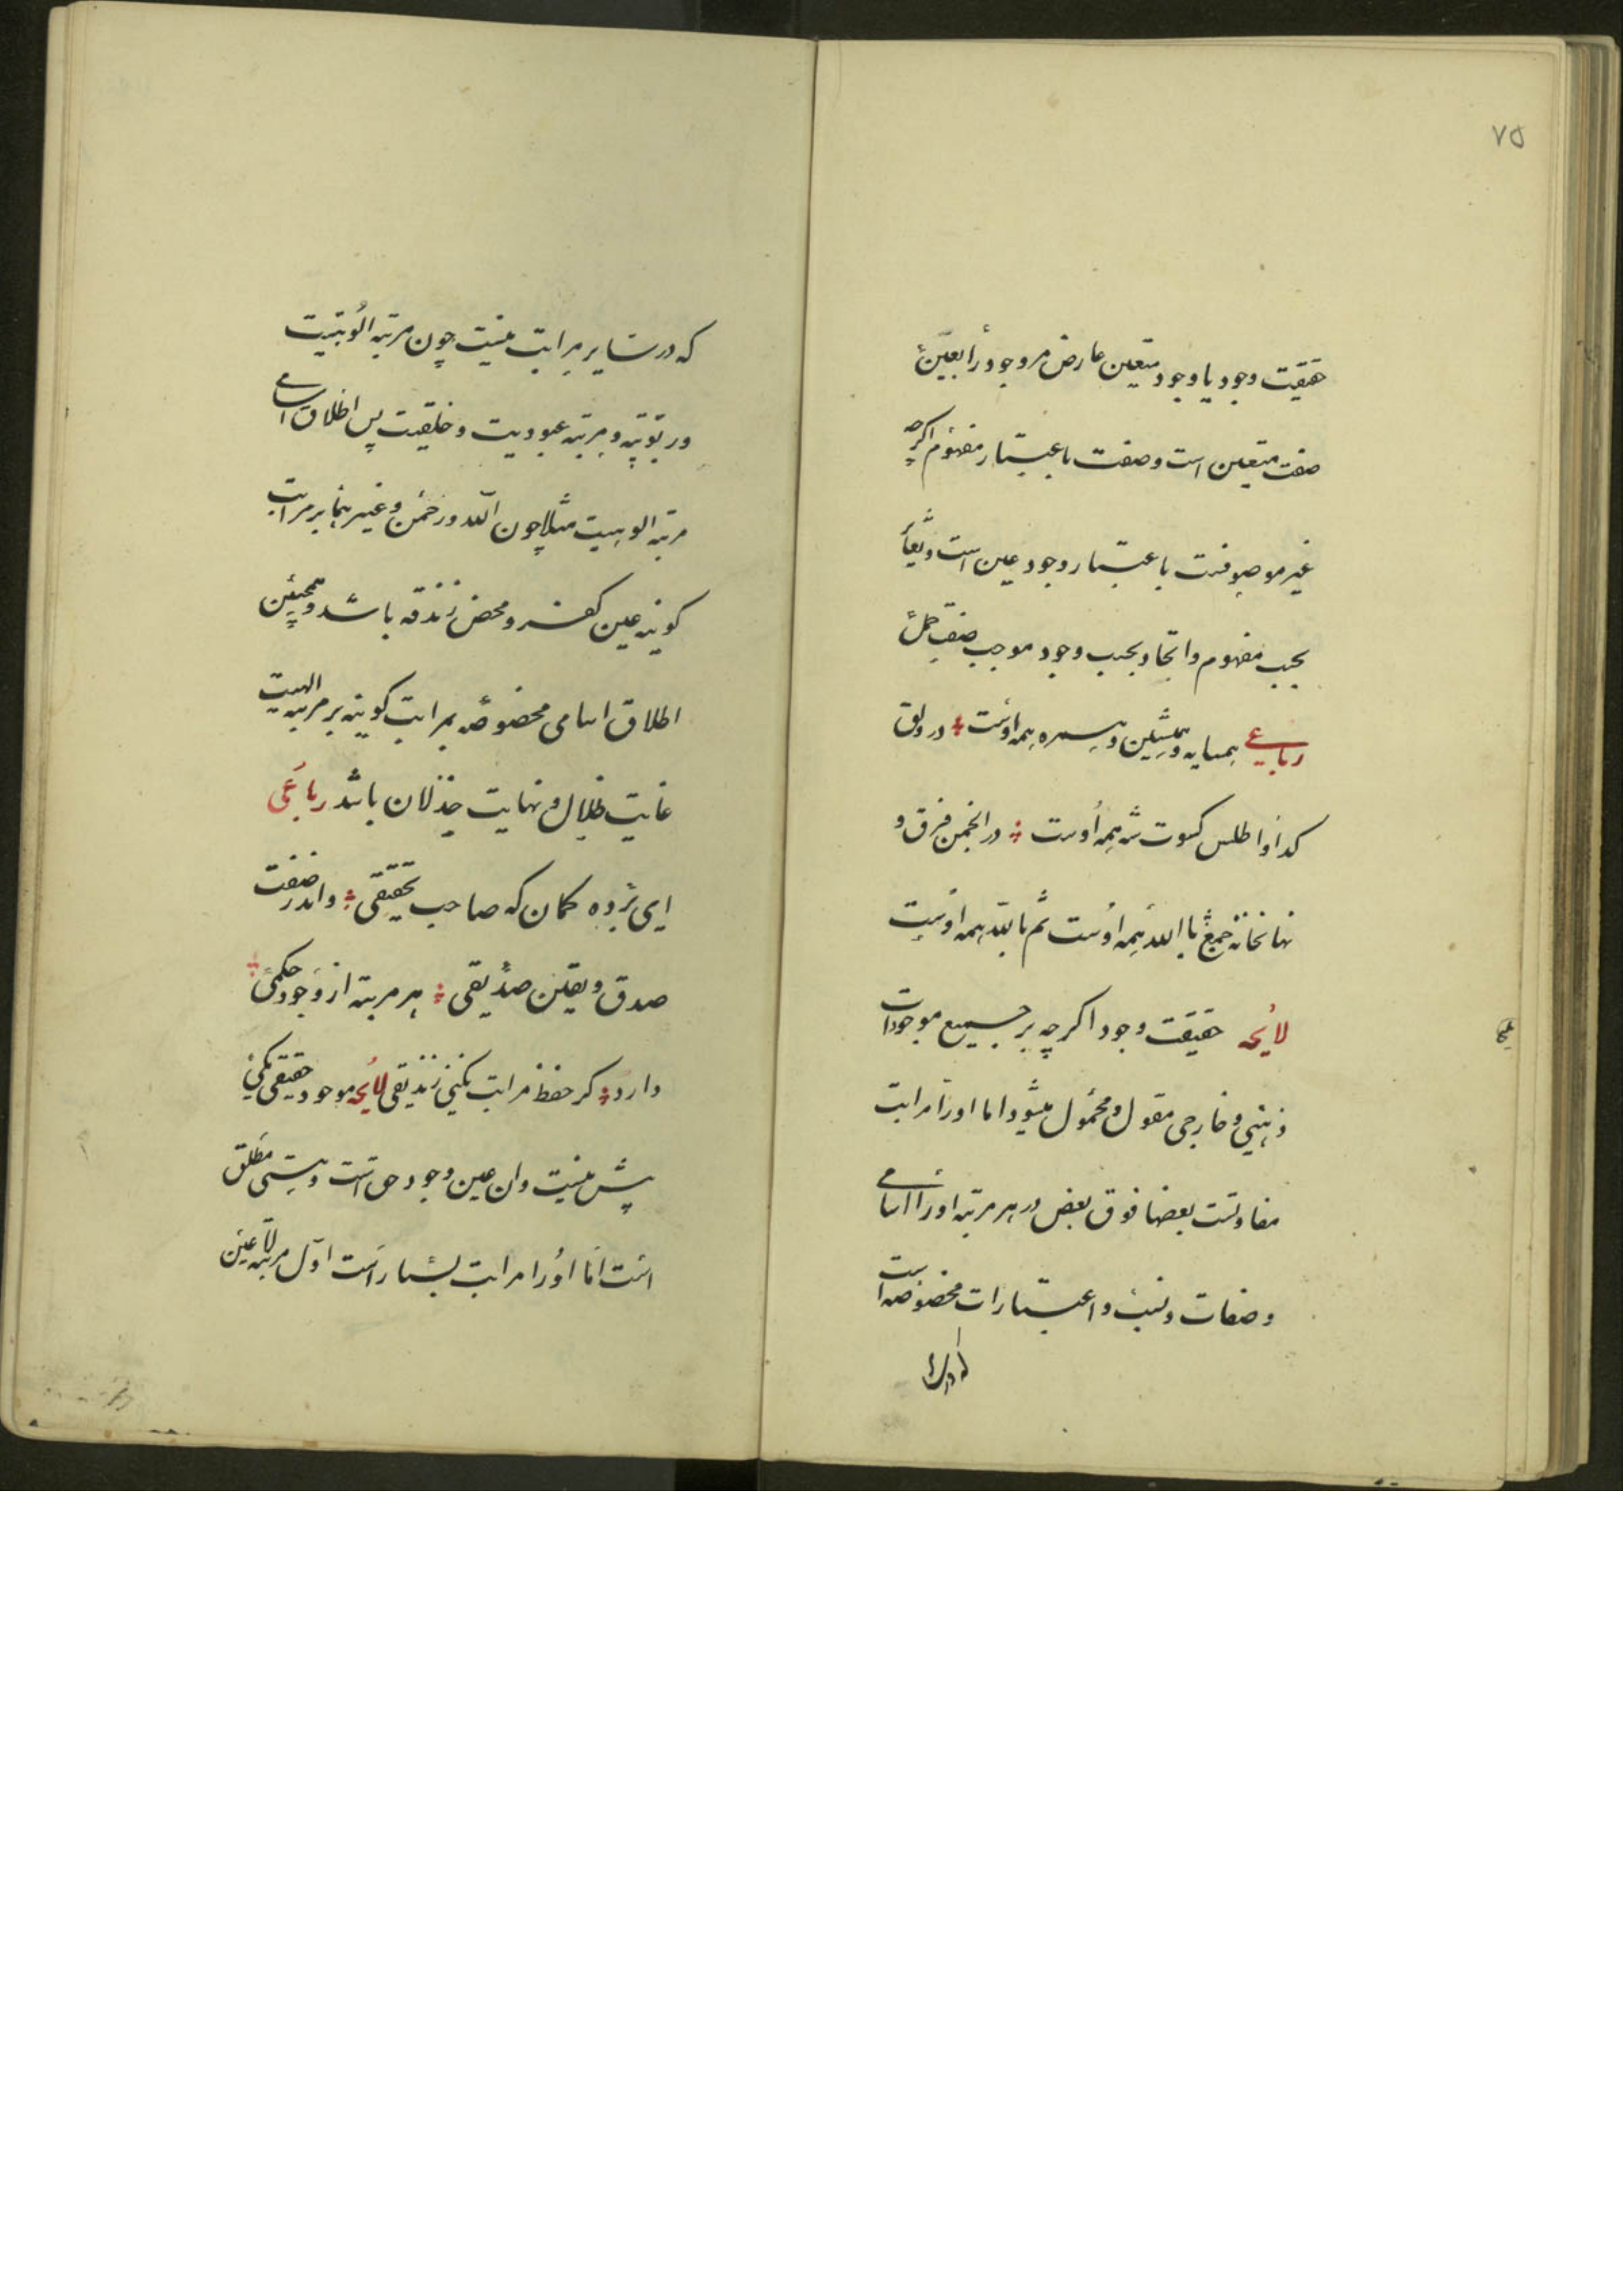 ۷۵
حقیقت وجود یا وجود متعین عارض مر وجود را بعین
صفت متعین است و صفت باعتبار مفهوم اکرچه
غیر موصوفست باعتبار وجود عین است و تغایر
بحسب مفهوم و اتحاد بحسب وجود موجب صفت حمل
رباعی همسایه و همنشین و همره همه اوست در دلق
کدا و اطلس کسوت شه همه اوست در انجمن فرق و
نهانخانه جمع باالله همه اوست ثم بالله همه اوست
لایحه حقیقت وجود اکرچه بر جمیع موجودات
ذهنی و خارجی مقول و محمول میشود اما او را مراتب
متفاوتست بعضها فوق بعض در هر مرتبه او را اسامی
و صفات و نسب و اعتبارات مخصوصه است
که در سایر مراتب نیست چون مرتبه الوهیت
و ربوبیه و مرتبه عبودیت و خلقیت پس اطلاق اسامی
مرتبه الوهیت مثلا چون الله و رحمن و غیرهما بر مراتب
کونیه عین کفر و محض زندقه باشد و همچنین
اطلاق اسامی مخصوصه بمراتب کونیه بر مرتبه الهیت
غایت ظلال و نهایت خذلان باشد رباعی
ای برده کمان که صاحب تحقیقی واندر صفت
صدق و یقین صدیقی هر مرتبه از وجود حکمی
دارد کر حفظ مراتب نکنی زندیقی لایحه موجود حقیقی یکی
پیش نیست وان عین وجود حق است و هستی مطلق
است اما او را مراتب بسیار است اول مرتبه لا تعین